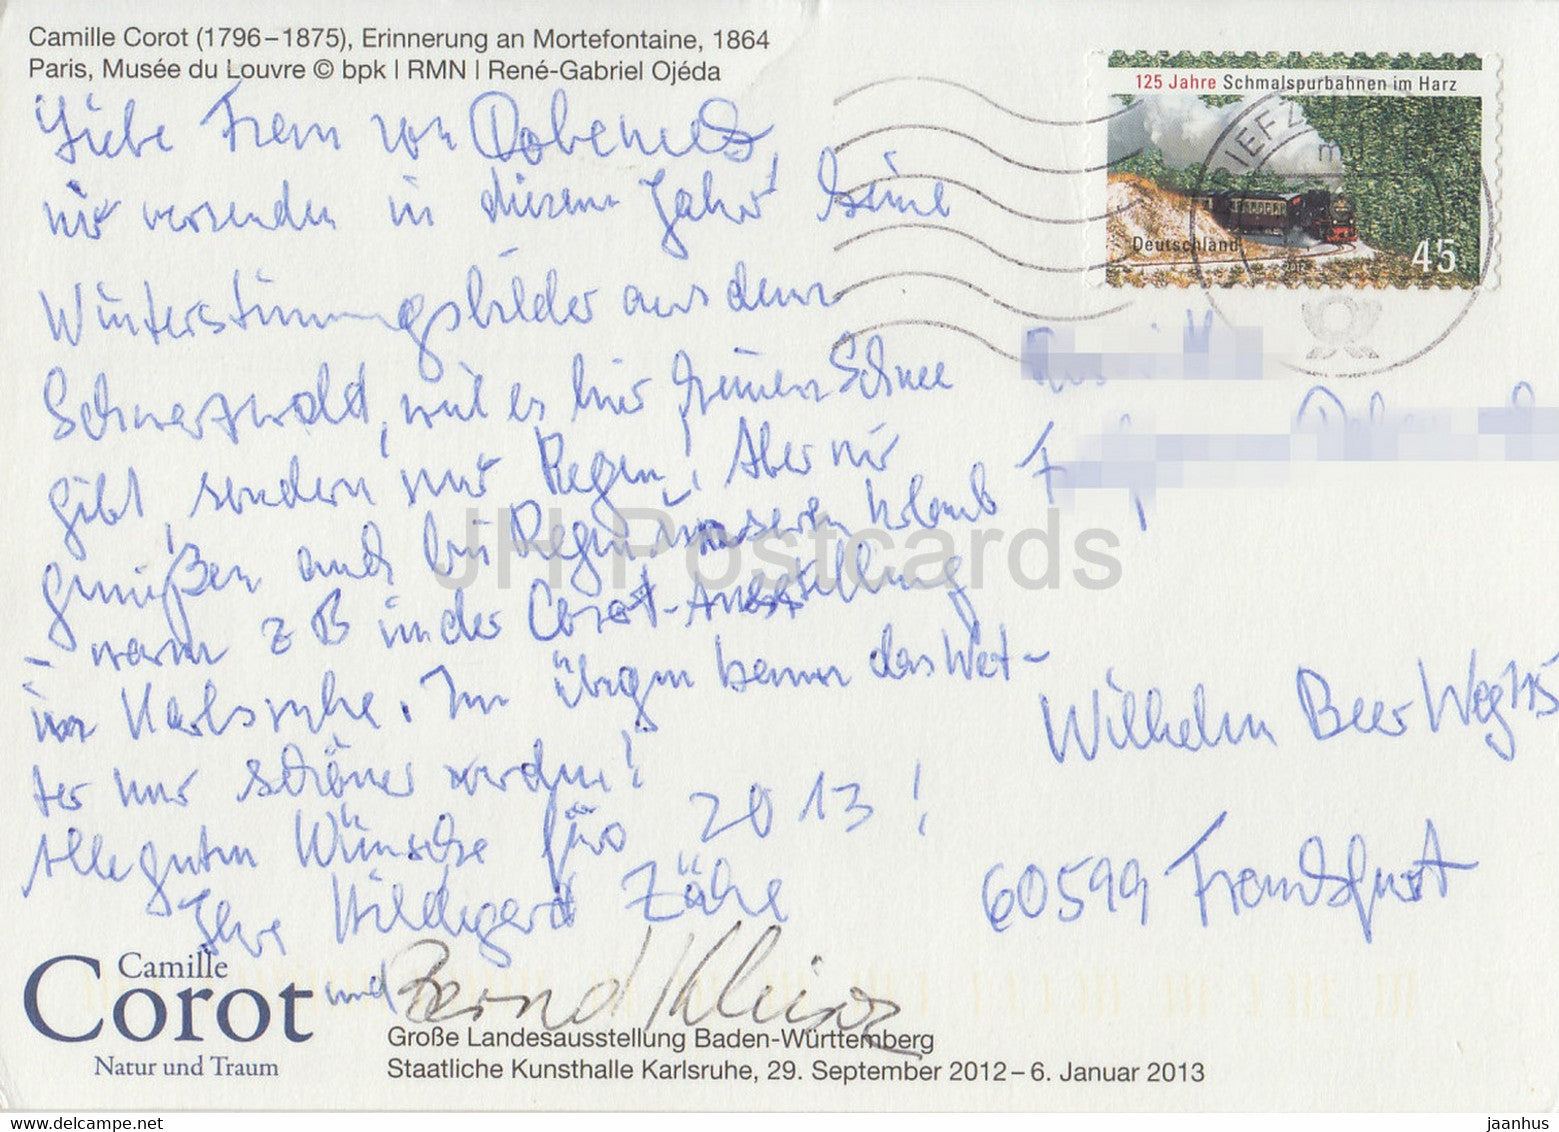 Camille Corot (1796–1875), Erinnerung an Mortefontaine, 1864
Paris, Musée du Louvre © bpk | RMN | René-Gabriel Ojéda
125 Jahre Schmalspurbahnen im Harz
Deutschland
45
Liebe Frau von Dobeneck,
wir versenden in diesem Jahr keine
Winterstimmungsbilder aus dem
Schwarzwald, weil es hier keinen Schnee
gibt, sondern nur Regen! Aber wir
genießen auch bei Regen unseren Urlaub
– warm z B in der Corot-Ausstellung
in Karlsruhe. Im übrigen kann das Wet-
ter nur schöner werden!
Alle guten Wünsche für 2013!
Ihre Hildegard Zähe
und Bernd
Wilhelm Beer Weg
60599 Frankfurt
Camille
Corot
Natur und Traum
Große Landesausstellung Baden-Württemberg
Staatliche Kunsthalle Karlsruhe, 29. September 2012–6. Januar 2013
JH Postcards
jaanhus